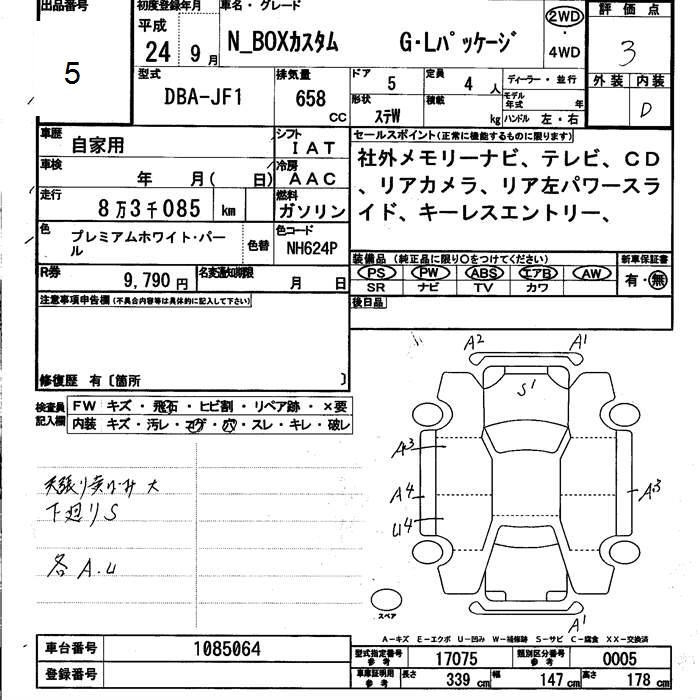 出品番号
5
初度登録年月
平成
24 9月
車名・グレード
N_BOXカスタム G・Lパッケージ
2WD
・
4WD
評価点
3
外装 内装
D
型式
DBA-JF1
排気量
658
CC
ドア
5
定員
4人
ディーラー・並行
形状
ステW
積載
kg
モデル年式
年
ハンドル 左・右
車歴
自家用
シフト
IAT
車検
年 月( 日)
冷房
AAC
走行
8万3千085 km
燃料
ガソリン
色
プレミアムホワイト・パール
色替
色コード
NH624P
R券
9,790円
名変通知期限
月 日
セールスポイント(正常に機能するものに限ります)
社外メモリーナビ、テレビ、CD
、リアカメラ、リア左パワースラ
イド、キーレスエントリー、
装備品(純正品に限り○をつけてください)
PS PW ABS エアB AW
SR ナビ TV カワ
新車保証書
有・無
後日品
注意事項申告欄(不具合内容等は具体的に記入して下さい)
修復歴 有〔箇所 〕
検査員
記入欄
FW キズ・飛石・ヒビ割・リペア跡・×要
内装 キズ・汚レ・コゲ・穴・スレ・キレ・破レ
下廻りS
各A.U
A2 A1
S1
A3
A4
U4
A3
A1
スペア
A-キズ E-エクボ U-凹み W-補修跡 S-サビ C-腐食 XX-交換済
車台番号
1085064
登録番号
型式指定番号
参考
17075
類別区分番号
参考
0005
車庫証明用
参考
長さ 339cm 幅 147cm 高さ 178cm